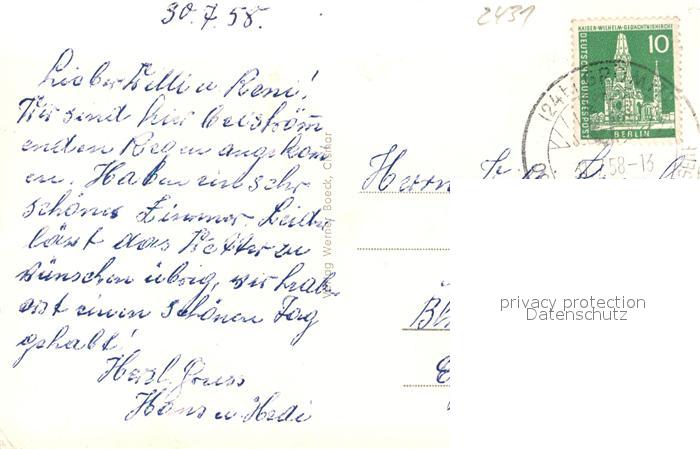 30.7.58.
2431
Lieber Willi u Reni!
Wir sind hier bei ström
enden Regen angekom
en. Haben ein sehr
schönes Zimmer. Leider
lässt das Wetter zu
wünschen übrig, wir hab
erst einen schönen Tag
gehabt!
Herzl. Gruss
Hans u Hedi
Verlag Werner Boeck, Cismar
Herrn
KAISER-WILHELM-GEDÄCHTNISKIRCHE
DEUTSCHE BUNDESPOST
10
BERLIN
58-13
privacy protection
Datenschutz